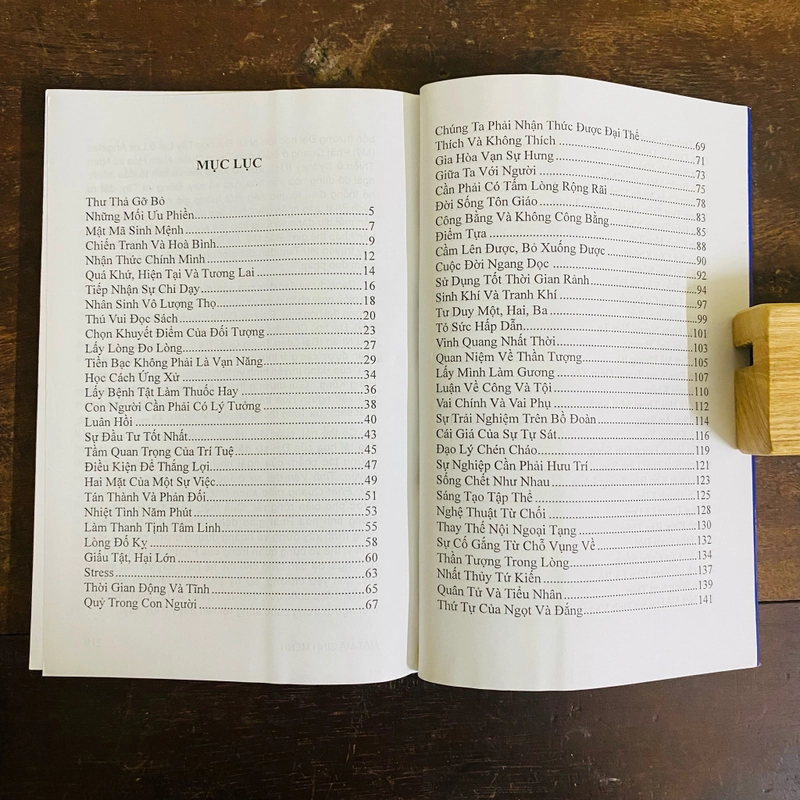 MỤC LỤC
Thư Thả Gỡ Bỏ
Những Mối Ưu Phiền 5
Mật Mã Sinh Mệnh 7
Chiến Tranh Và Hoà Bình 9
Nhận Thức Chính Mình 12
Quá Khứ, Hiện Tại Và Tương Lai 14
Tiếp Nhận Sự Chỉ Dạy 16
Nhân Sinh Vô Lượng Thọ 18
Thú Vui Đọc Sách 20
Chọn Khuyết Điểm Của Đối Tượng 23
Lấy Lòng Đo Lòng 27
Tiền Bạc Không Phải Là Vạn Năng 29
Học Cách Ứng Xử 34
Lấy Bệnh Tật Làm Thuốc Hay 36
Con Người Cần Phải Có Lý Tưởng 38
Luân Hồi 40
Sự Đầu Tư Tốt Nhất 43
Tầm Quan Trọng Của Trí Tuệ 45
Điều Kiện Để Thắng Lợi 47
Hai Mặt Của Một Sự Việc 49
Tán Thành Và Phản Đối 51
Nhiệt Tình Năm Phút 53
Làm Thanh Tịnh Tâm Linh 55
Lòng Đố Kỵ 58
Giấu Tật, Hại Lớn 60
Stress 63
Thời Gian Động Và Tĩnh 65
Quỷ Trong Con Người 67
Chúng Ta Phải Nhận Thức Được Đại Thể 69
Thích Và Không Thích 71
Gia Hòa Vạn Sự Hưng 73
Giữa Ta Với Người 75
Cần Phải Có Tấm Lòng Rộng Rãi 78
Đời Sống Tôn Giáo 83
Công Bằng Và Không Công Bằng 85
Điểm Tựa 88
Cầm Lên Được, Bỏ Xuống Được 90
Cuộc Đời Ngang Dọc 92
Sử Dụng Tốt Thời Gian Rảnh 94
Sinh Khí Và Tranh Khí 97
Tư Duy Một, Hai, Ba 99
Tỏ Sức Hấp Dẫn 101
Vinh Quang Nhất Thời 103
Quan Niệm Về Thần Tượng 105
Lấy Mình Làm Gương 107
Luận Về Công Và Tội 110
Vai Chính Và Vai Phụ 112
Sự Trải Nghiệm Trên Bồ Đoàn 114
Cái Giá Của Sự Tự Sát 116
Đạo Lý Chén Cháo 119
Sự Nghiệp Cần Phải Hưu Trí 121
Sống Chết Như Nhau 123
Sáng Tạo Tập Thể 125
Nghệ Thuật Từ Chối 128
Thay Thế Nội Ngoại Tạng 130
Sự Cố Gắng Từ Chỗ Vụng Về 132
Thần Tượng Trong Lòng 134
Nhất Thủy Tứ Kiến 137
Quân Tử Và Tiểu Nhân 139
Thứ Tự Của Ngọt Và Đắng 141